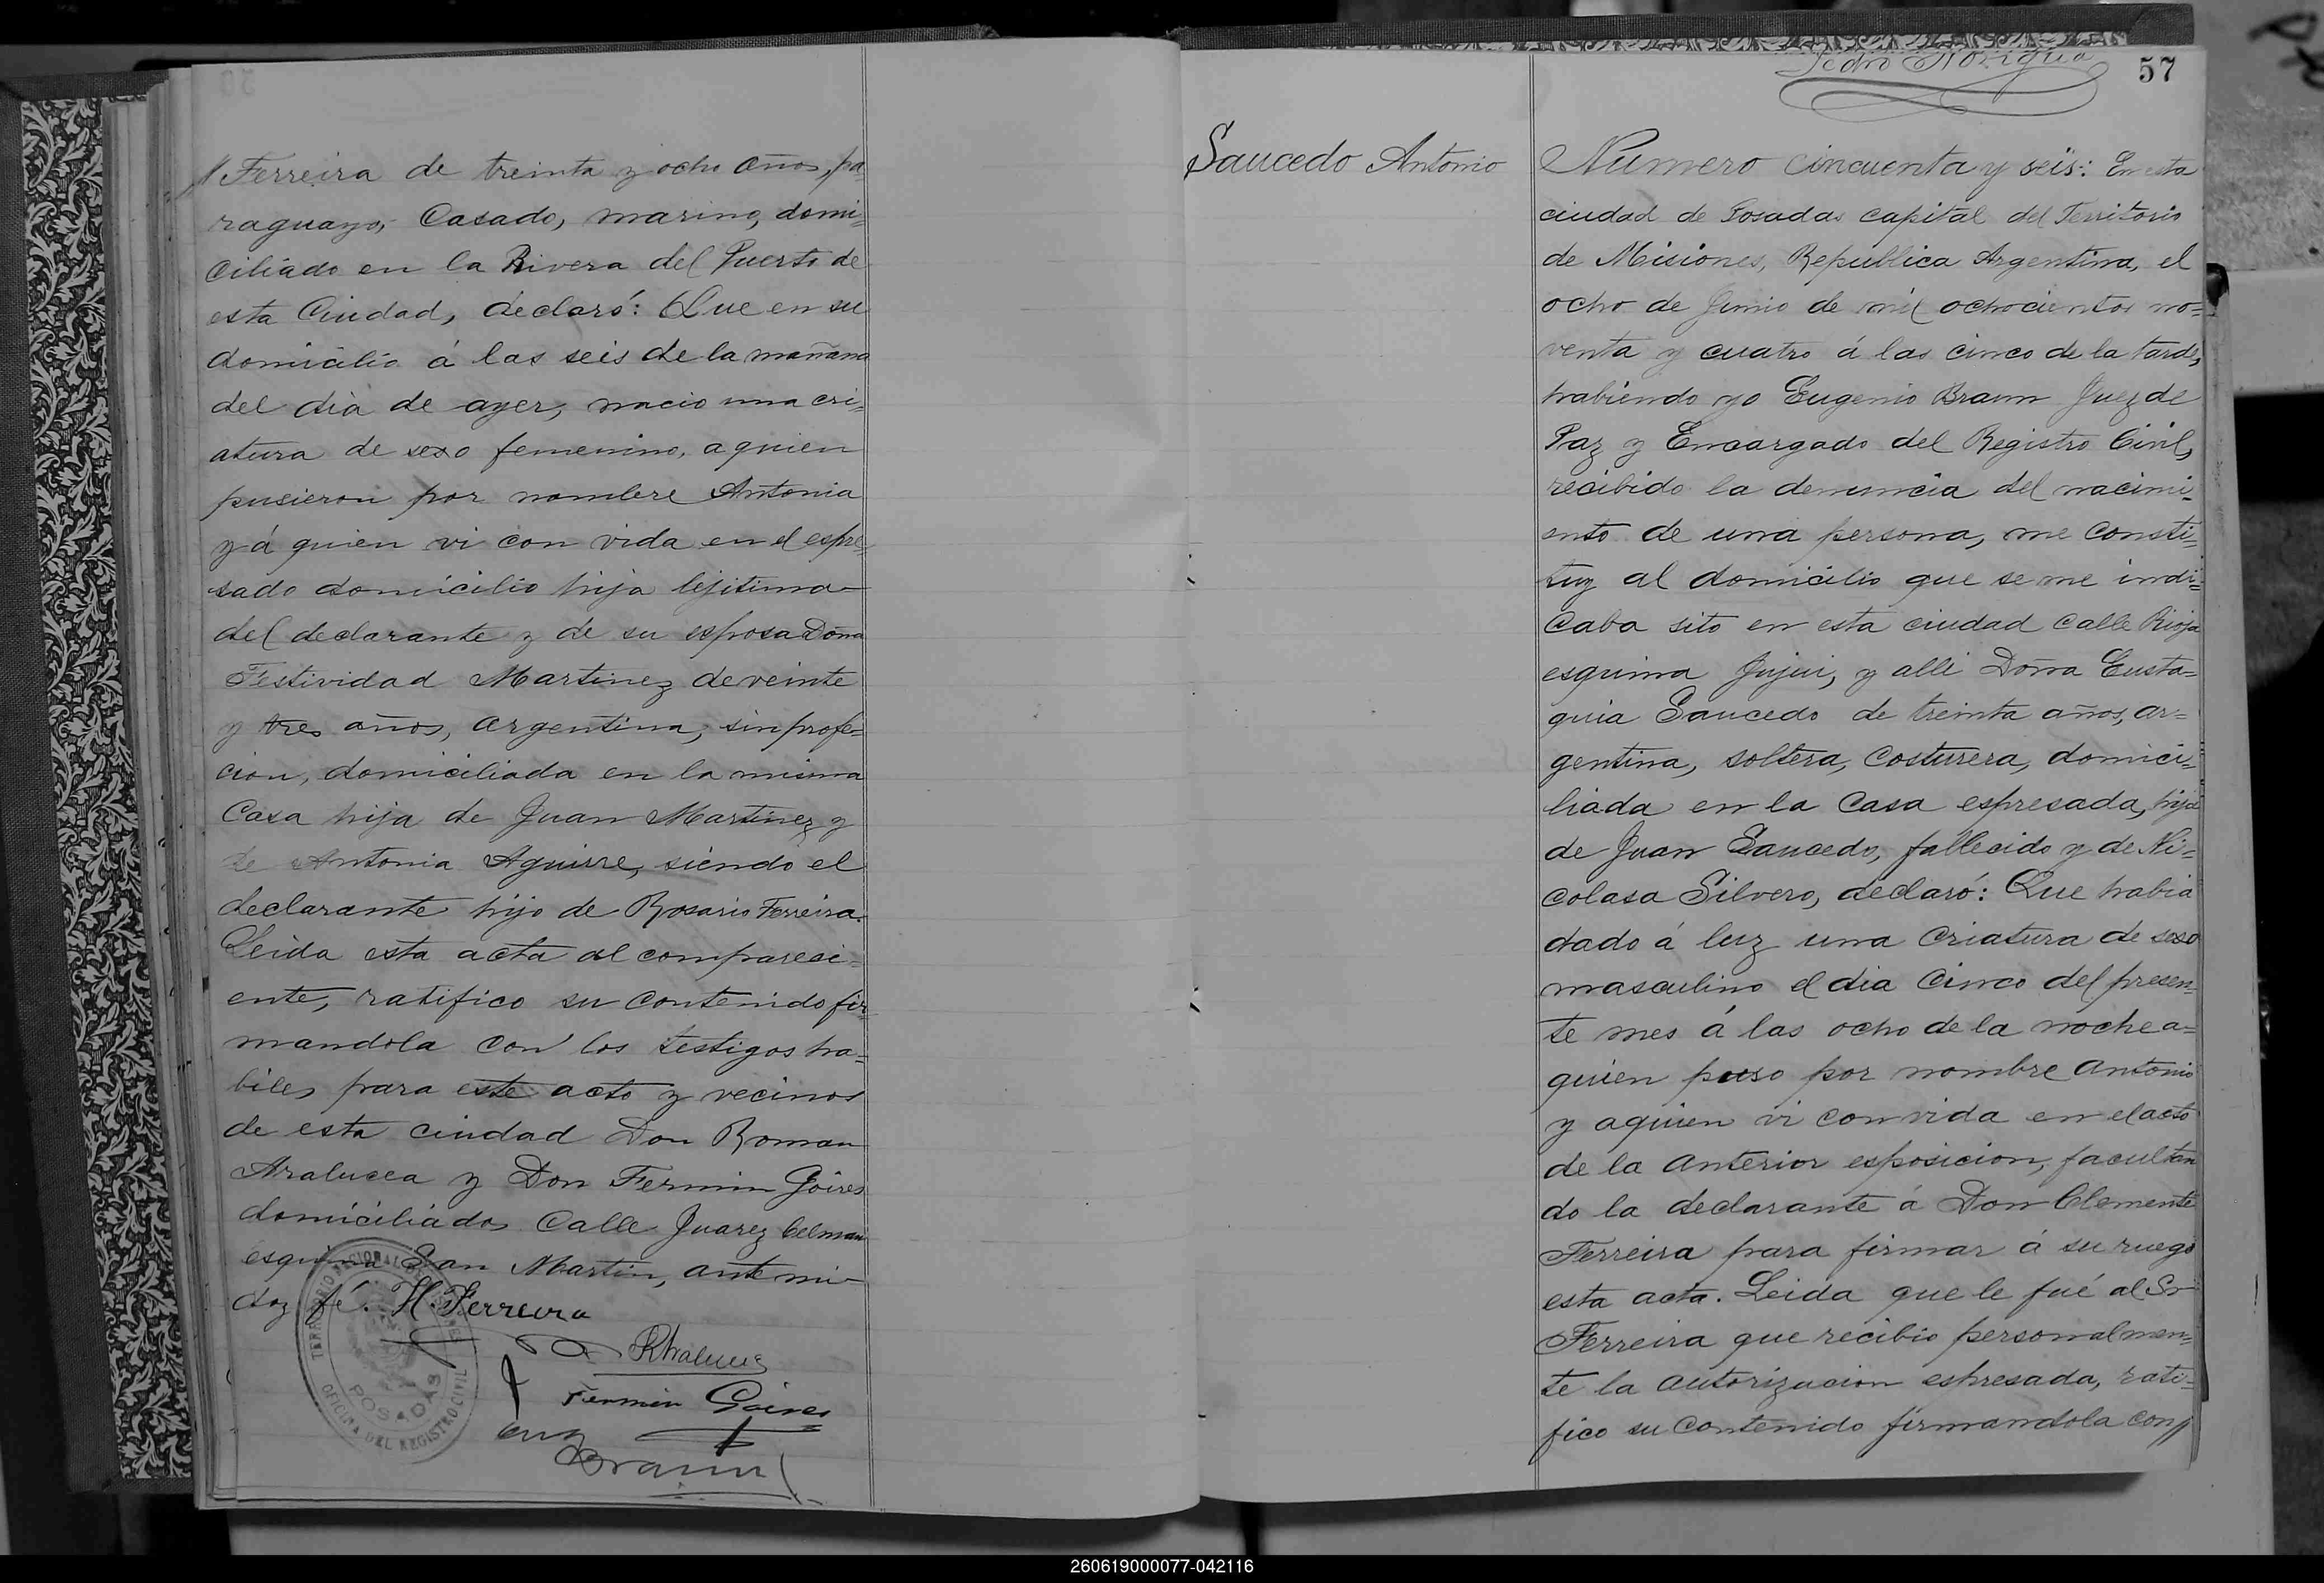 // Ferreira de treinta y ocho años, pa-
raguayo, Casado, marino, domi=
ciliado en la Rivera del Puerto de
esta Ciudad, declaró: Que en su
domicilio á las seis de la mañana
del dia de ayer, nacio una cri=
atura de sexo femenino, a quien
pusieron por nombre Antonia
y á quien vi con vida en el espre=
sado domicilio hija lejitima
del declarante y de su esposa Doña
Festividad Martinez de veinte
y tres años, argentina, sin profe=
cion, domiciliada en la misma
Casa hija de Juan Martinez y
de Antonia Aguirre, siendo el
declarante hijo de Rosario Ferreira.
Leida esta acta al comparesi=
ente, ratifico su contenido fir=
mandola con los testigos ha=
biles para este acto y vecinos
de esta ciudad Don Roman
Aralucea y Don Fermin Goires
domiciliados Calle Juarez Celman
esquina San Martin, ante mi
doy fé. H. Ferreira
Fermin Goires
Eug
Braun
TERRITORIO NACIONAL DE MISIONES
POSADAS
OFICINA DEL REGISTRO CIVIL
Pedro Noriega
57
Saucedo Antonio
Numero cincuenta y seis: En esta
ciudad de Posadas capital del Territorio
de Misiones, Republica Argentina, el
ocho de Junio de mil ochocientos no=
venta y cuatro á las cinco de la tarde,
habiendo yo Eugenio Braun Juez de
Paz y Encargado del Registro Civil,
recibido la denuncia del nacimi=
ento de una persona, me consti=
tuy al domicilio que se me indi=
caba sito en esta ciudad calle Rioja
esquina Jujui, y alli Doña Eusta=
quia Saucedo de treinta años, ar=
gentina, soltera, Costurera, domici=
liada en la Casa espresada, hija
de Juan Saucedo, fallecido y de Ni=
colasa Silvero, declaró: Que habia
dado á luz una Criatura de sexo
masculino el dia Cinco del presen=
te mes á las ocho de la noche a=
quien puso por nombre Antonio
y aquien vi con vida en el acto
de la anterior esposicion, facultan
do la declarante á Don Clemente
Ferreira para firmar á su ruego
esta acta. Leida que le fué al Sr
Ferreira que recibio personalmen=
te la autorizacion espresada, rati=
fico su contenido firmandola con //
260619000077-042116